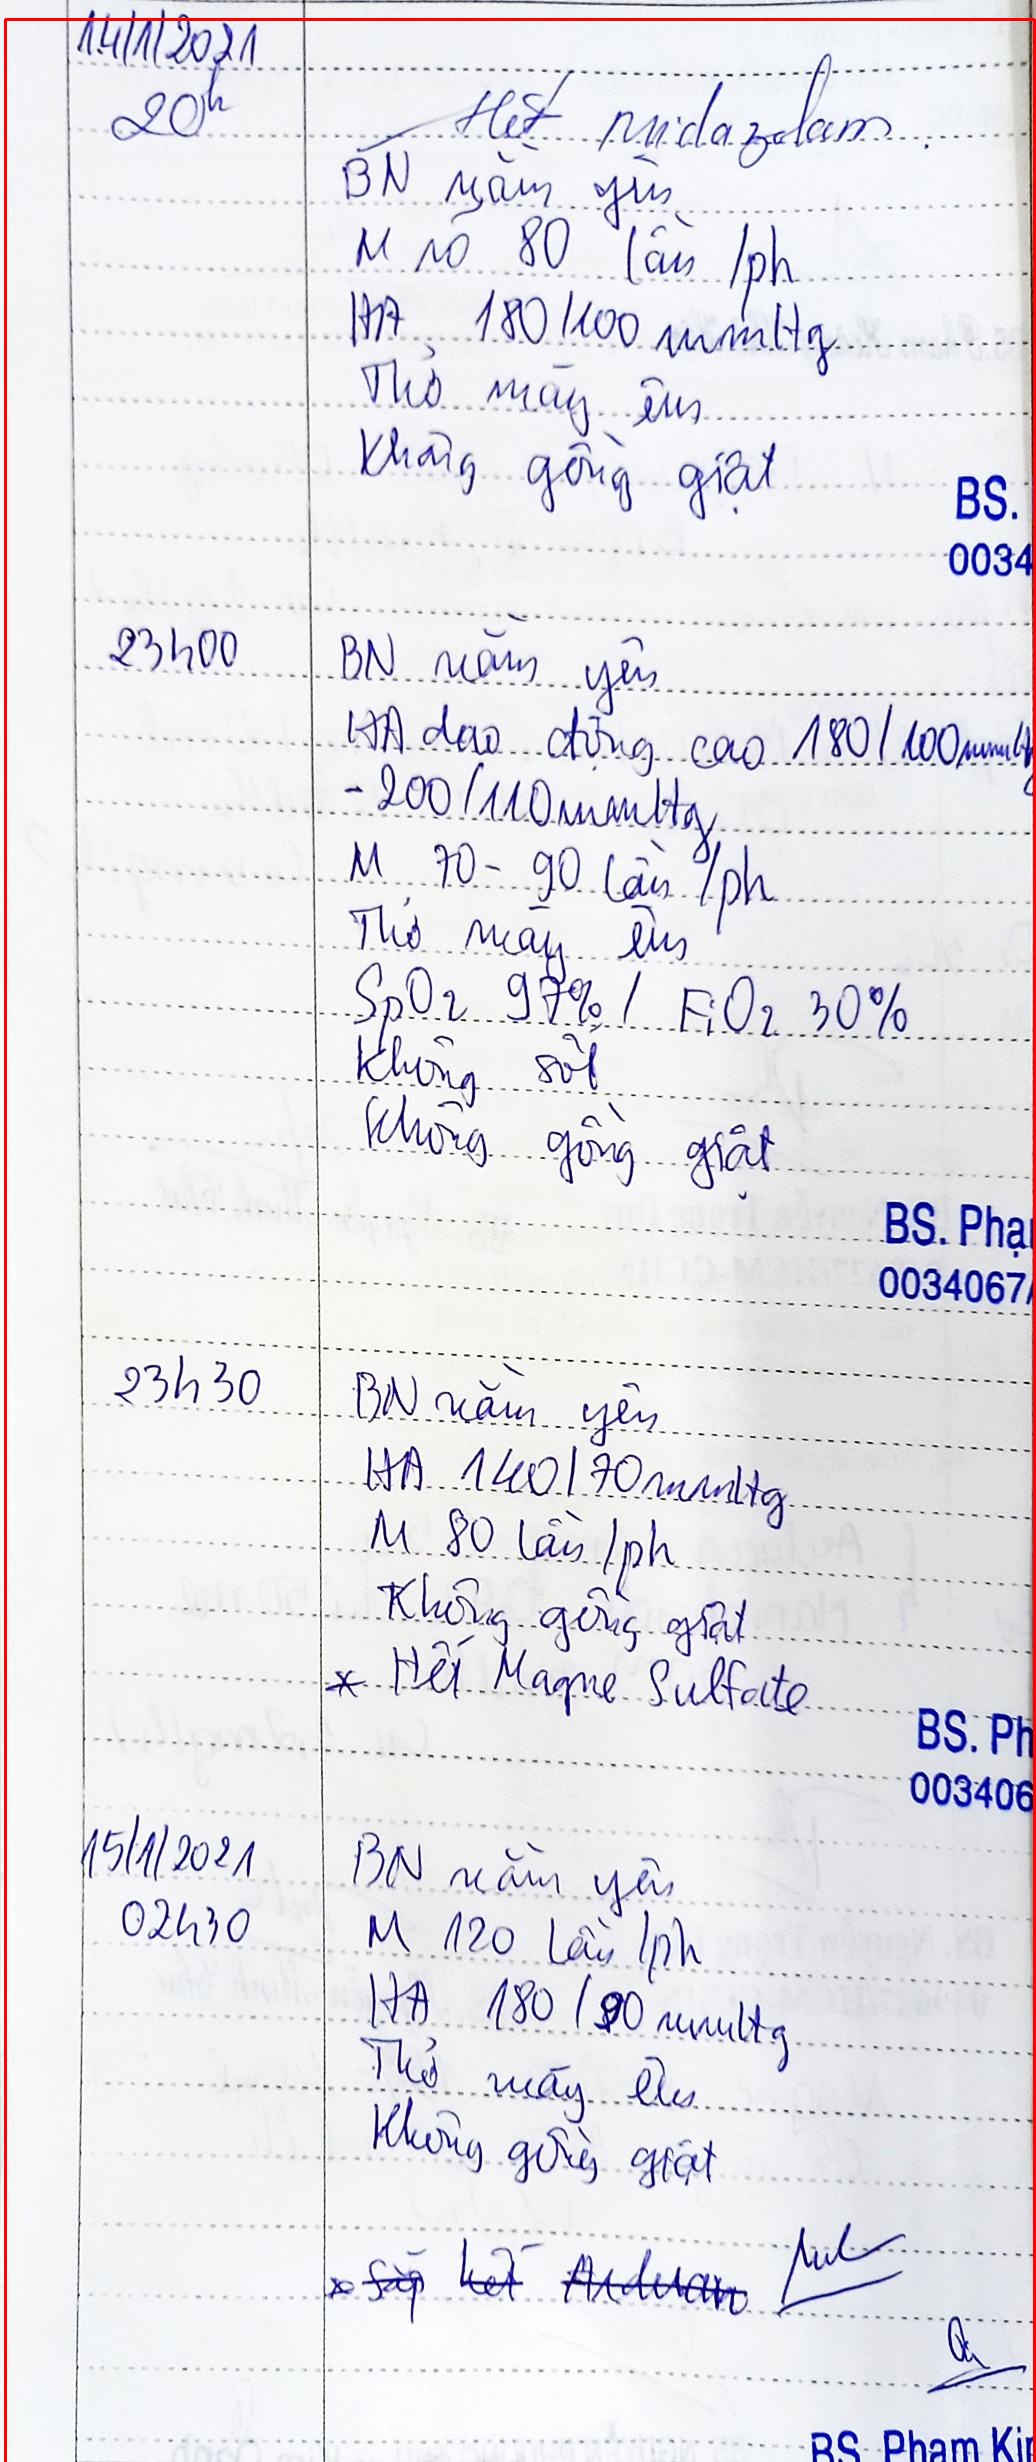 14/1/2021
20h
Hết midazolam
BN nằm yên
M rõ 80 lần /ph
HA 180/100 mmHg
Thở máy êm
Không gồng giật
BS.
0034
23h00
BN nằm yên
HA dao động cao 180/100mmHg
- 200/110mmHg
M 70 - 90 lần /ph
Thở máy êm
SpO2 97% / FiO2 30%
Không sốt
Không gồng giật
BS. Phạ
0034067/
23h30
BN nằm yên
HA 140/70mmHg
M 80 lần /ph
Không gồng giật
* Hết Magne Sulfate
BS. Ph
003406
15/1/2021
02h30
BN nằm yên
M 120 lần /ph
HA 180 / 90 mmHg
Thở máy êm
Không gồng giật
* sắp hết Arduan
BS. Phạm Ki